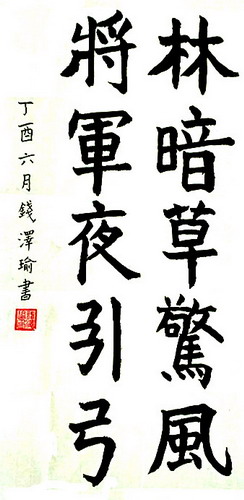 林暗草驚風
將軍夜引弓
丁酉六月錢澤瑜書